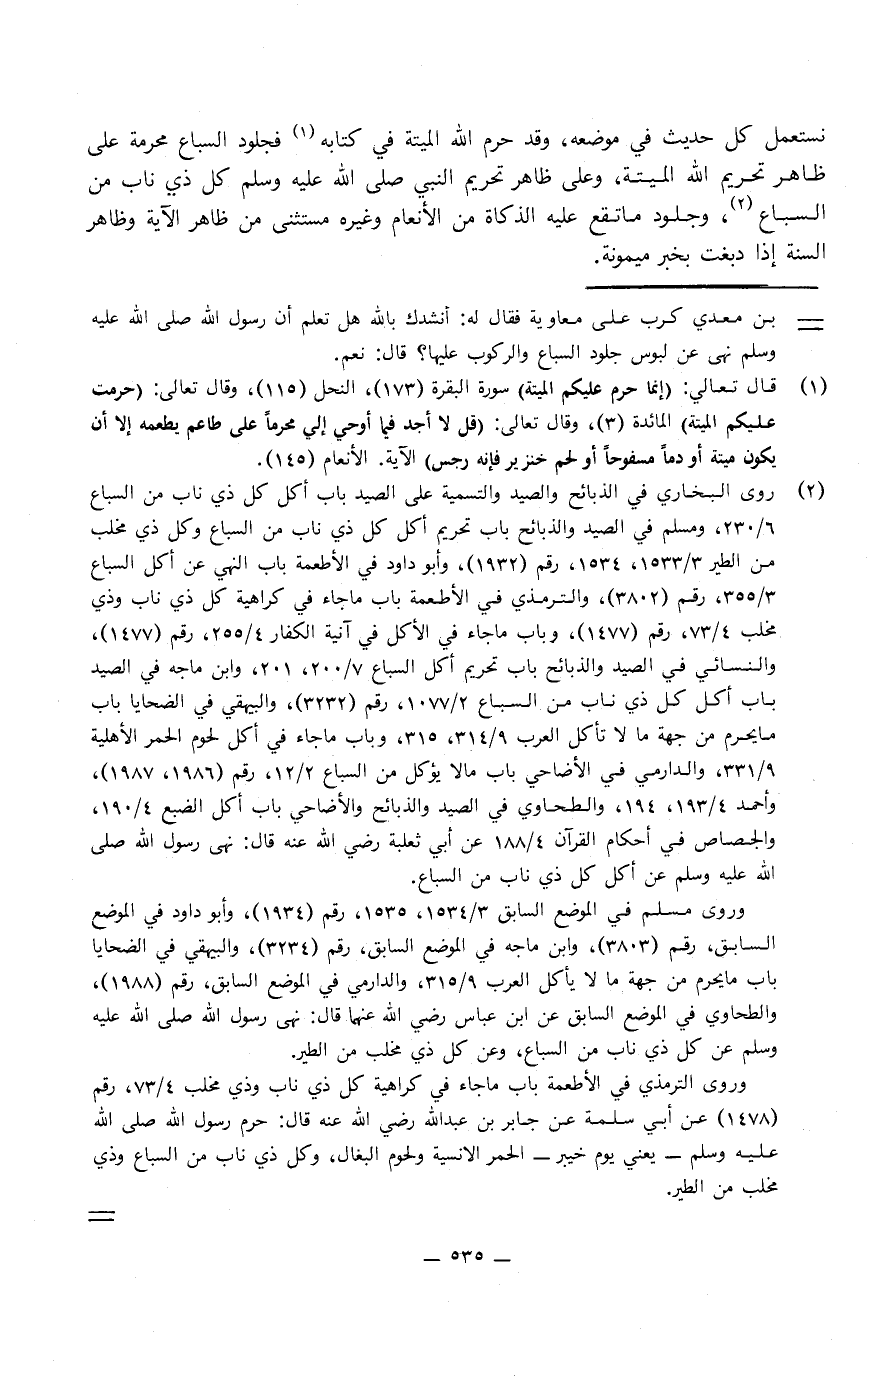 نستعمل كل حديث في موضعه، وقد حرم الله الميتة في كتابه (١) فجلود السباع محرمة على
ظاهر تحريم الله الميتة، وعلى ظاهر تحريم النبي صلى الله عليه وسلم كل ذي ناب من
السباع (٢)، وجلود ماتقع عليه الذكاة من الأنعام وغيره مستثنى من ظاهر الآية وظاهر
السنة إذا دبغت بخبر ميمونة.
= بن معدي كرب على معاوية فقال له: أنشدك بالله هل تعلم أن رسول الله صلى الله عليه
وسلم نهى عن لبوس جلود السباع والركوب عليها؟ قال: نعم.
(١) قال تعالي: (إنما حرم عليكم الميتة) سورة البقرة (١٧٣)، النحل (١١٥)، وقال تعالى: (حرمت
عليكم الميتة) المائدة (٣)، وقال تعالى: (قل لا أجد فيما أوحي إلي محرماً على طاعم يطعمه إلا أن
يكون ميتة أو دماً مسفوحاً أو لحم خنزير فإنه رجس) الآية. الأنعام (١٤٥).
(٢) روى البخاري في الذبائح والصيد والتسمية على الصيد باب أكل كل ذي ناب من السباع
٢٣٠/٦، ومسلم في الصيد والذبائح باب تحريم أكل كل ذي ناب من السباع وكل ذي مخلب
من الطير ١٥٣٣/٣، ١٥٣٤، رقم (١٩٣٢)، وأبو داود في الأطعمة باب النهي عن أكل السباع
٣٥٥/٣، رقم (٣٨٠٢)، والترمذي في الأطعمة باب ماجاء في كراهية كل ذي ناب وذي
مخلب ٧٣/٤، رقم (١٤٧٧)، وباب ماجاء في الأكل في آنية الكفار ٢٥٥/٤، رقم (١٤٧٧)،
والنسائي في الصيد والذبائح باب تحريم أكل السباع ٢٠٠/٧، ٢٠١، وابن ماجه في الصيد
باب أكل كل ذي ناب من السباع ١٠٧٧/٢، رقم (٣٢٣٢)، والبيهقي في الضحايا باب
مايحرم من جهة ما لا تأكل العرب ٣١٤/٩، ٣١٥، وباب ماجاء في أكل لحوم الحمر الأهلية
٣٣١/٩، والدارمي في الأضاحي باب مالا يؤكل من السباع ١٢/٢، رقم (١٩٨٦، ١٩٨٧)،
وأحمد ١٩٣/٤، ١٩٤، والطحاوي في الصيد والذبائح والأضاحي باب أكل الضبع ١٩٠/٤،
والجصاص في أحكام القرآن ١٨٨/٤ عن أبي ثعلبة رضي الله عنه قال: نهى رسول الله صلى
الله عليه وسلم عن أكل كل ذي ناب من السباع.
وروى مسلم في الموضع السابق ١٥٣٤/٣، ١٥٣٥، رقم (١٩٣٤)، وأبو داود في الموضع
السابق، رقم (٣٨٠٣)، وابن ماجه في الموضع السابق، رقم (٣٢٣٤)، والبيهقي في الضحايا
باب مايحرم من جهة ما لا يأكل العرب ٣١٥/٩، والدارمي في الموضع السابق، رقم (١٩٨٨)،
والطحاوي في الموضع السابق عن ابن عباس رضي الله عنهما قال: نهى رسول الله صلى الله عليه
وسلم عن كل ذي ناب من السباع، وعن كل ذي مخلب من الطير.
وروى الترمذي في الأطعمة باب ماجاء في كراهية كل ذي ناب وذي مخلب ٧٣/٤، رقم
(١٤٧٨) عن أبي سلمة عن جابر بن عبدالله رضي الله عنه قال: حرم رسول الله صلى الله
عليه وسلم ــ يعني يوم خيبر ــ الحمر الانسية ولحوم البغال، وكل ذي ناب من السباع وذي
مخلب من الطير.
=
ــ ٥٣٥ ــ